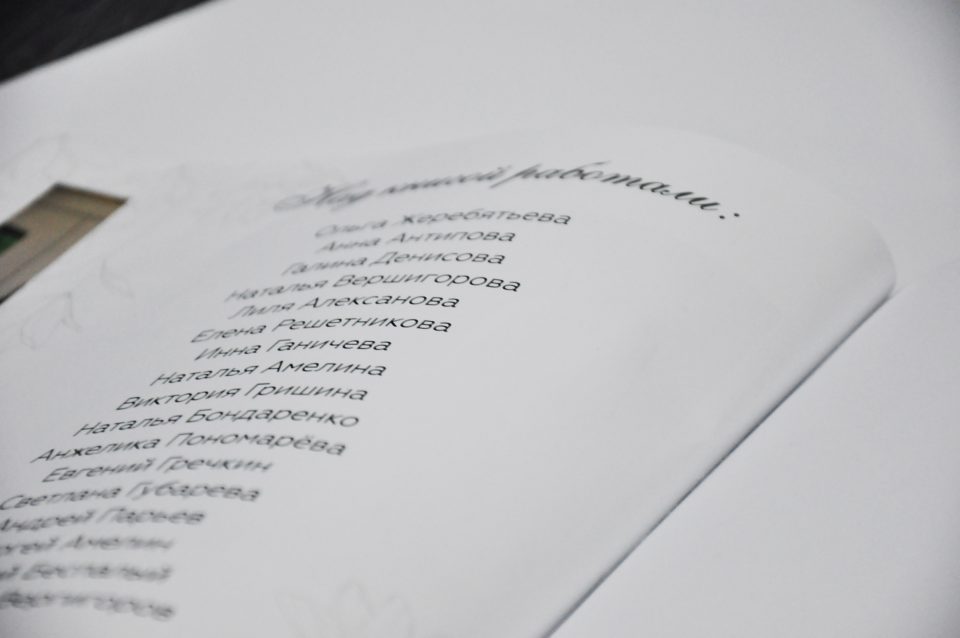 Над книгой работали:
Ольга Жеребятьева
Анна Антипова
Галина Денисова
Наталья Вершигорова
Лиля Алексанова
Елена Решетникова
Инна Ганичева
Наталья Амелина
Виктория Гришина
Наталья Бондаренко
Анжелика Пономарёва
Евгений Гречкин
Светлана Губарева
Андрей Ларьев
Амелин
Беспалый